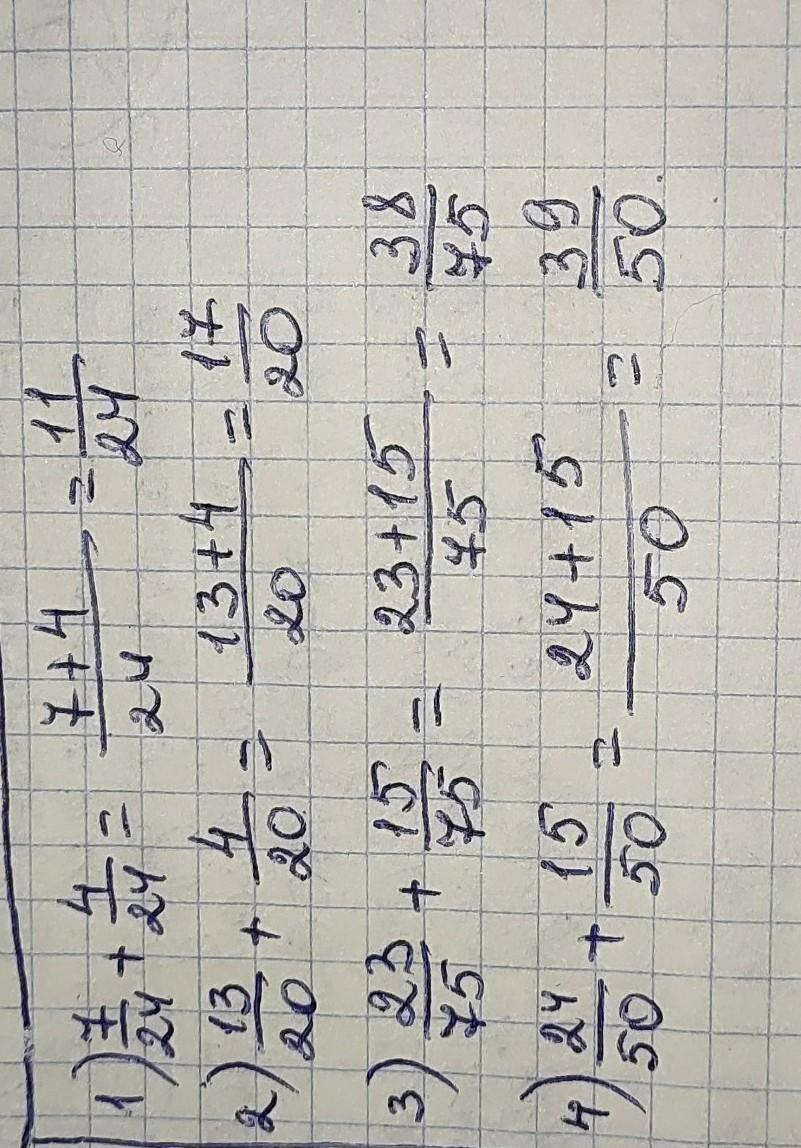 1) 7/24 + 4/24 = (7+4)/24 = 11/24
2) 13/20 + 4/20 = (13+4)/20 = 17/20
3) 23/75 + 15/75 = (23+15)/75 = 38/75
4) 24/50 + 15/50 = (24+15)/50 = 39/50.